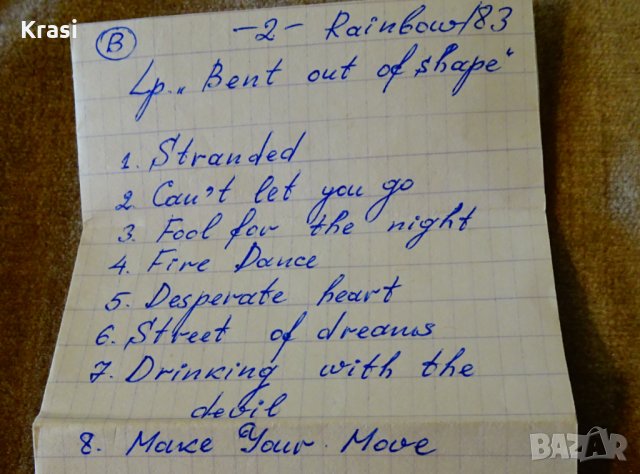 Krasi
B -2- Rainbow/83
Lp. „Bent out of shape"
1. Stranded
2. Can't let you go
3. Fool for the night
4. Fire Dance
5. Desperate heart
6. Street of dreams
7. Drinking with the
devil
8. Make Your Move
BAZAR